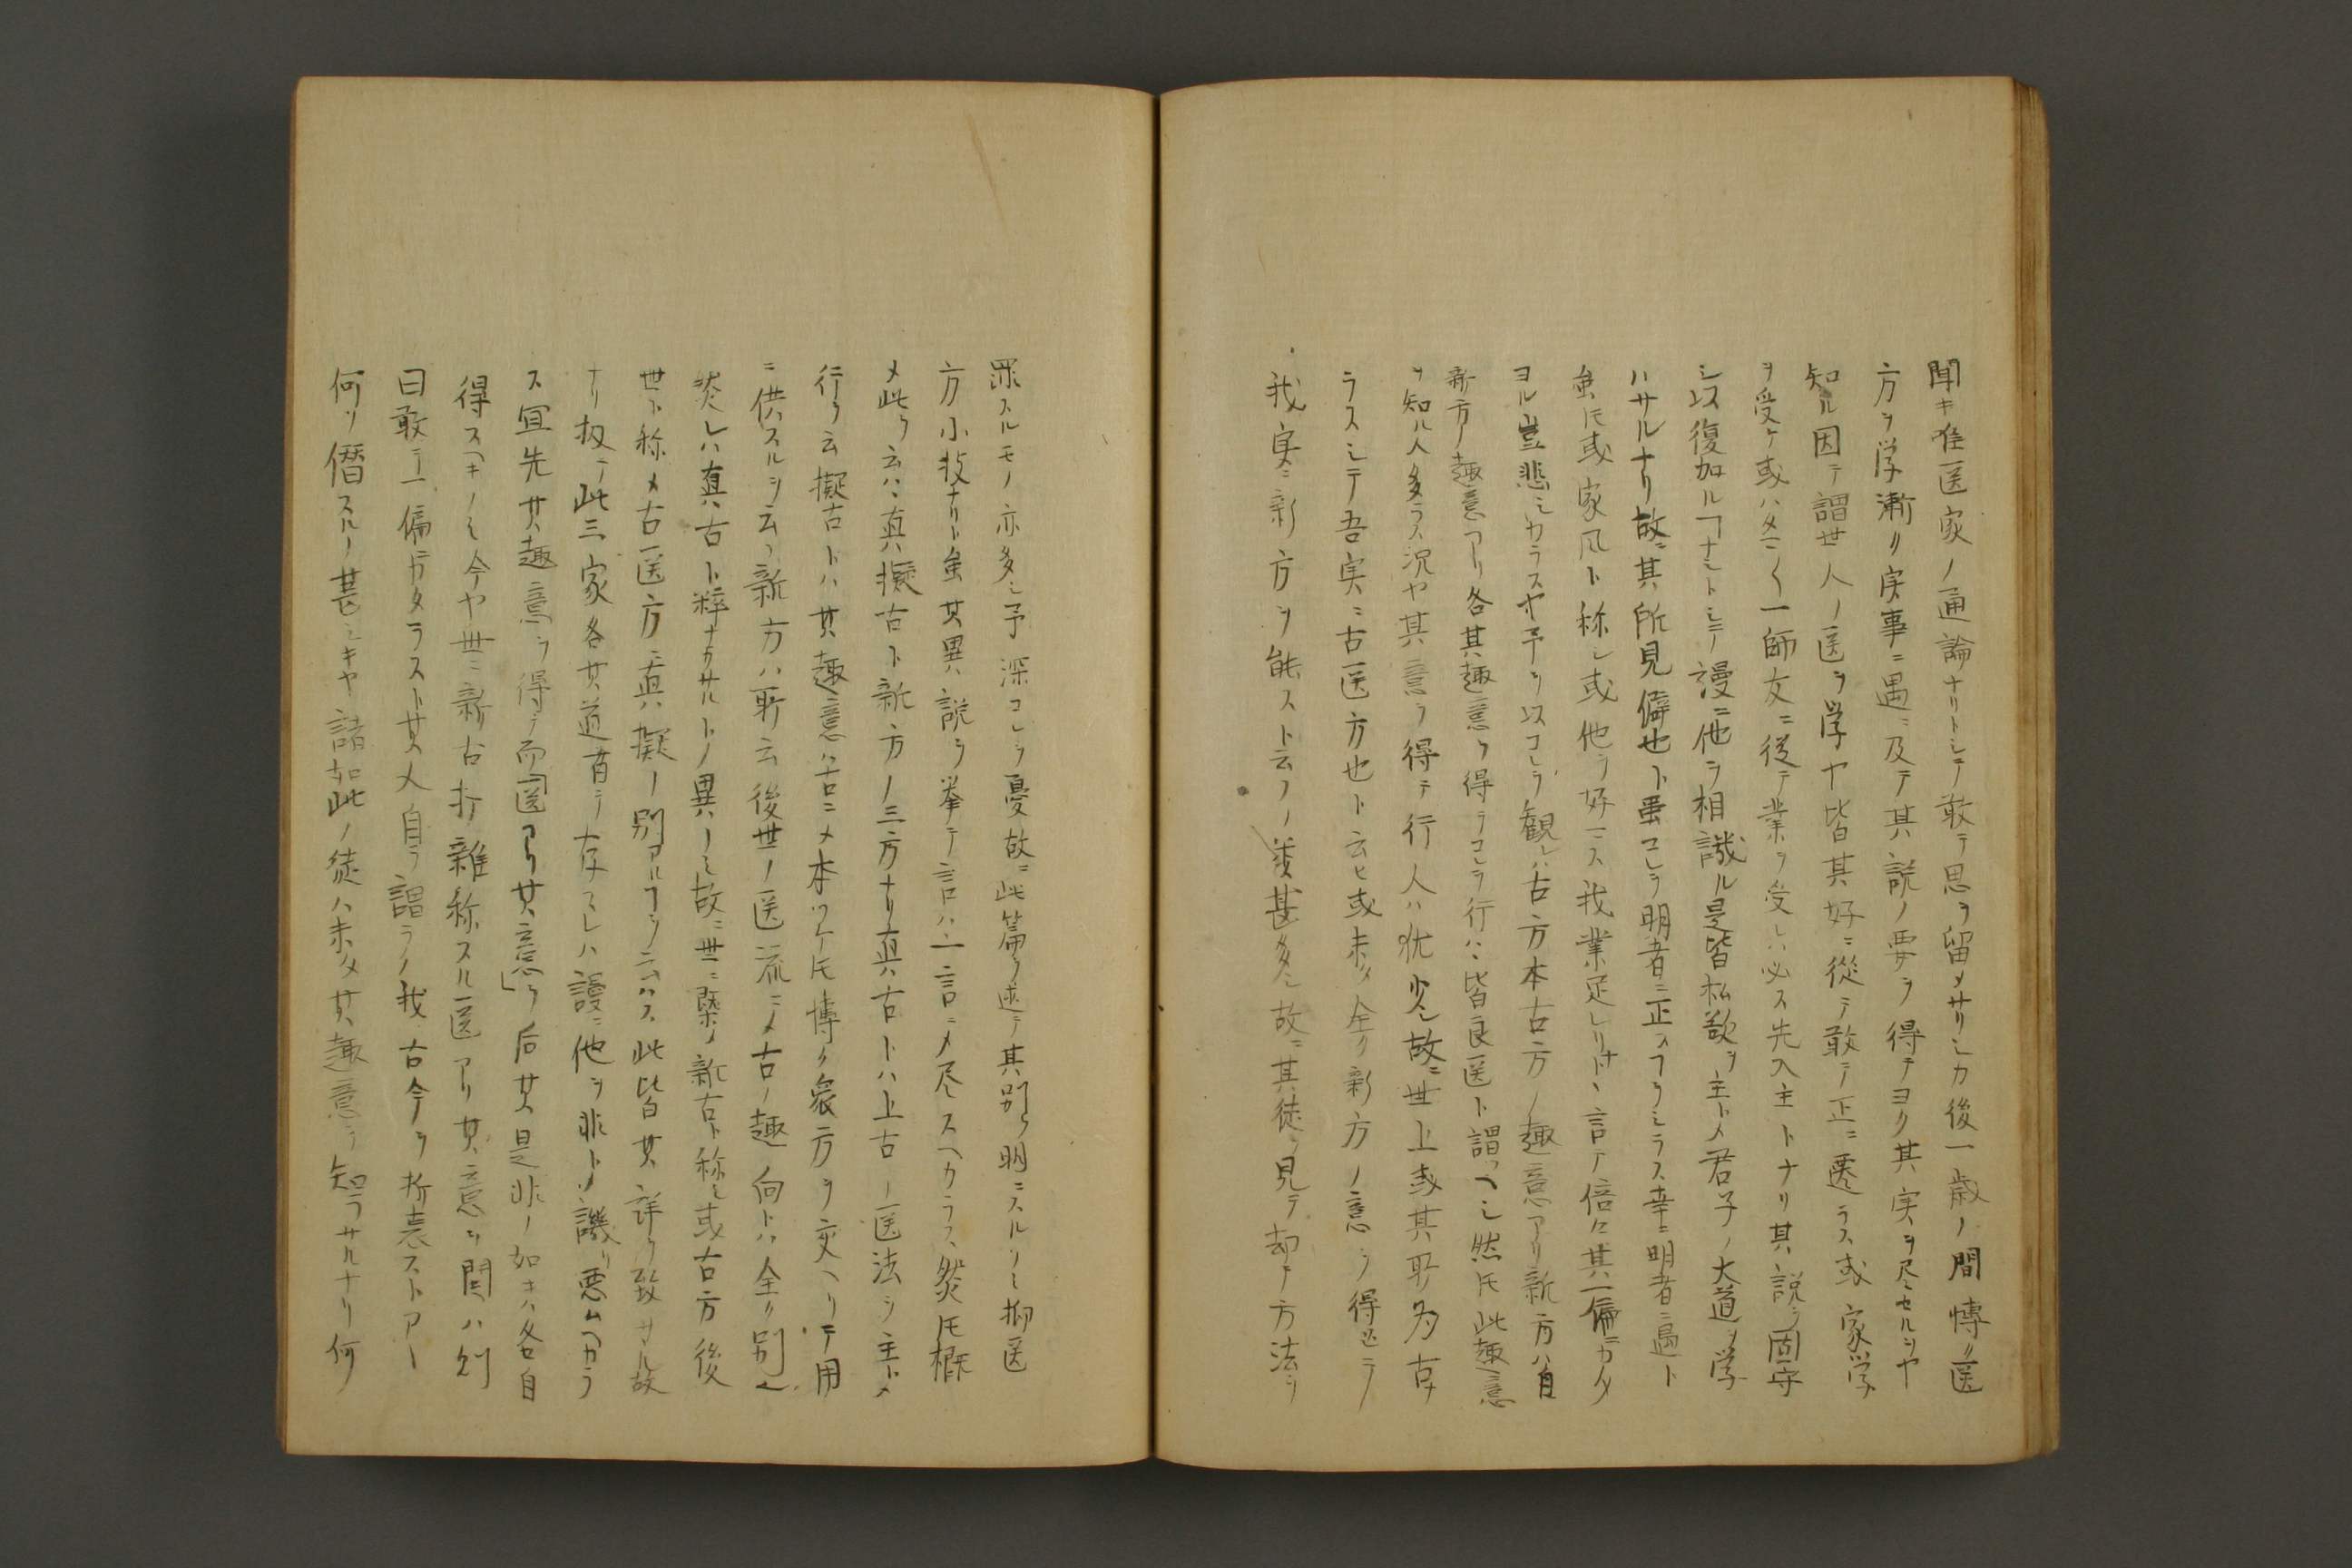 聞キ唯医家ノ通論ナリトシテ敢テ思ヲ留メサリシカ後一歳ノ間博ク医
方ヲ学漸ク実事ニ遇ニ及テ其説ノ要ヲ得テヨク其実ヲ尽セルヲヤ
知ル因テ謂世人ノ医ヲ学ヤ皆其好ニ従テ敢テ正ニ遷ラス或家学
ヲ受ケ或ハタマ〱一師友ニ従テ業ヲ受レハ必ス先入主トナリ其説ヲ固守
シ以復加ルヿナシトシテ謾ニ他ヲ相譏ル是皆私欲ヲ主トメ君子ノ大道ヲ学
ハサルナリ故ニ其所見僻也ト雖コレヲ明者ニ正スヿヲシラス幸ニ明者ニ遇ト
虽𪜈或家風ト称シ或他ヲ好マス我業足レリナト丶言テ倍々其一偏ニカタ
ヨル豈悲シカラスヤ予ヲ以コレヲ観レハ古方本古方ノ趣意アリ新方ハ自
新方ノ趣意アリ各其趣意ヲ得テコレヲ行ハ丶皆良医ト謂ヘシ然𪜈此趣意
ヲ知ル人多ラス況ヤ其意ヲ得テ行人ハ猶少シ故ニ世上或其形為古
ラスシテ吾実ニ古医方也ト云ヒ或未タ全ク新方ノ意ヲ得スシテ
我実ニ新方ヲ能スト云フノ輩甚多シ故ニ其徒ヲ見テ却テ方法ヲ
罪スルモノ亦多シ予深コレヲ憂故ニ此篇ヲ述テ其別ヲ明ニスルノミ抑医
方小技ナリト虽其異説ヲ挙テ言ハ丶一言ニメ尽スヘカラス然𪜈概
メ此ヲ云ハ丶真擬古ト新方ノ三方ナリ真古トハ上古ノ医法ヲ主トメ
行ヲ云擬古トハ其趣意ハ古ニメ本ツケ𪜈博ク衆方ヲ交ヘリテ用
ニ供スルヲ云フ新方ハ所云後世ノ医流ニメ古ノ趣向トハ全ク別也
然レハ真古ト粹ナラサルトノ異ノミ故ニ世ニ槩メ新古ト称シ或古方後
世ト称メ古医方ニ真擬ノ別アルヿヲ云ハス此皆其詳ヲ致サル故
ナリ扨テ此三家各其道旨ヲ存スレハ謾ニ他ヲ非トメ譏リ悪ムヘカラ
ス宜先其趣意ヲ得テ而医アリ其意ヲ后其是非ノ如キハ各自
得スヘキノミ今ヤ世ニ新古折雑称スル医アリ其意ヲ問ハ則
曰敢テ一偏ニカタラスト其人自ラ謂ラク我古今ヲ折衷ストアー
何ソ僭スルノ甚シキヤ諸如此ノ徒ハ未タ其趣意ヲ知ラサルナリ何